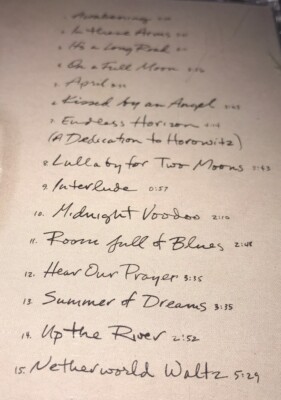 1. Awakening
2. In These Arms
3. It's a Long Road
4. On a Full Moon
5. April
6. Kissed by an Angel
7. Endless Horizon
(A Dedication to Horowitz)
8. Lullaby for Two Moons
9. Interlude 0:57
10. Midnight Voodoo 2:10
11. Room full of Blues 2:48
12. Hear Our Prayer 3:35
13. Summer of Dreams 3:35
14. Up the River 2:52
15. Netherworld Waltz 5:29